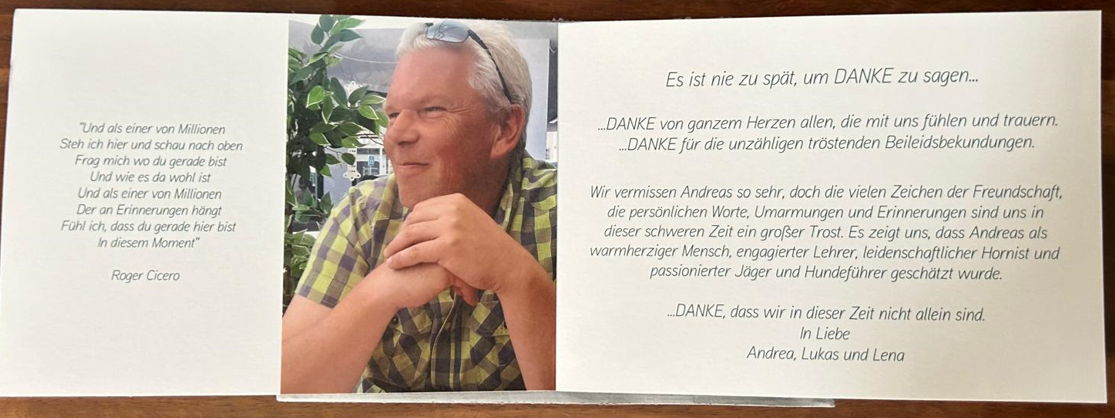 "Und als einer von Millionen
Steh ich hier und schau nach oben
Frag mich wo du gerade bist
Und wie es da wohl ist
Und als einer von Millionen
Der an Erinnerungen hängt
Fühl ich, dass du gerade hier bist
In diesem Moment"
Roger Cicero
Es ist nie zu spät, um DANKE zu sagen...
...DANKE von ganzem Herzen allen, die mit uns fühlen und trauern.
...DANKE für die unzähligen tröstenden Beileidsbekundungen.
Wir vermissen Andreas so sehr, doch die vielen Zeichen der Freundschaft,
die persönlichen Worte, Umarmungen und Erinnerungen sind uns in
dieser schweren Zeit ein großer Trost. Es zeigt uns, dass Andreas als
warmherziger Mensch, engagierter Lehrer, leidenschaftlicher Hornist und
passionierter Jäger und Hundeführer geschätzt wurde.
...DANKE, dass wir in dieser Zeit nicht allein sind.
In Liebe
Andrea, Lukas und Lena